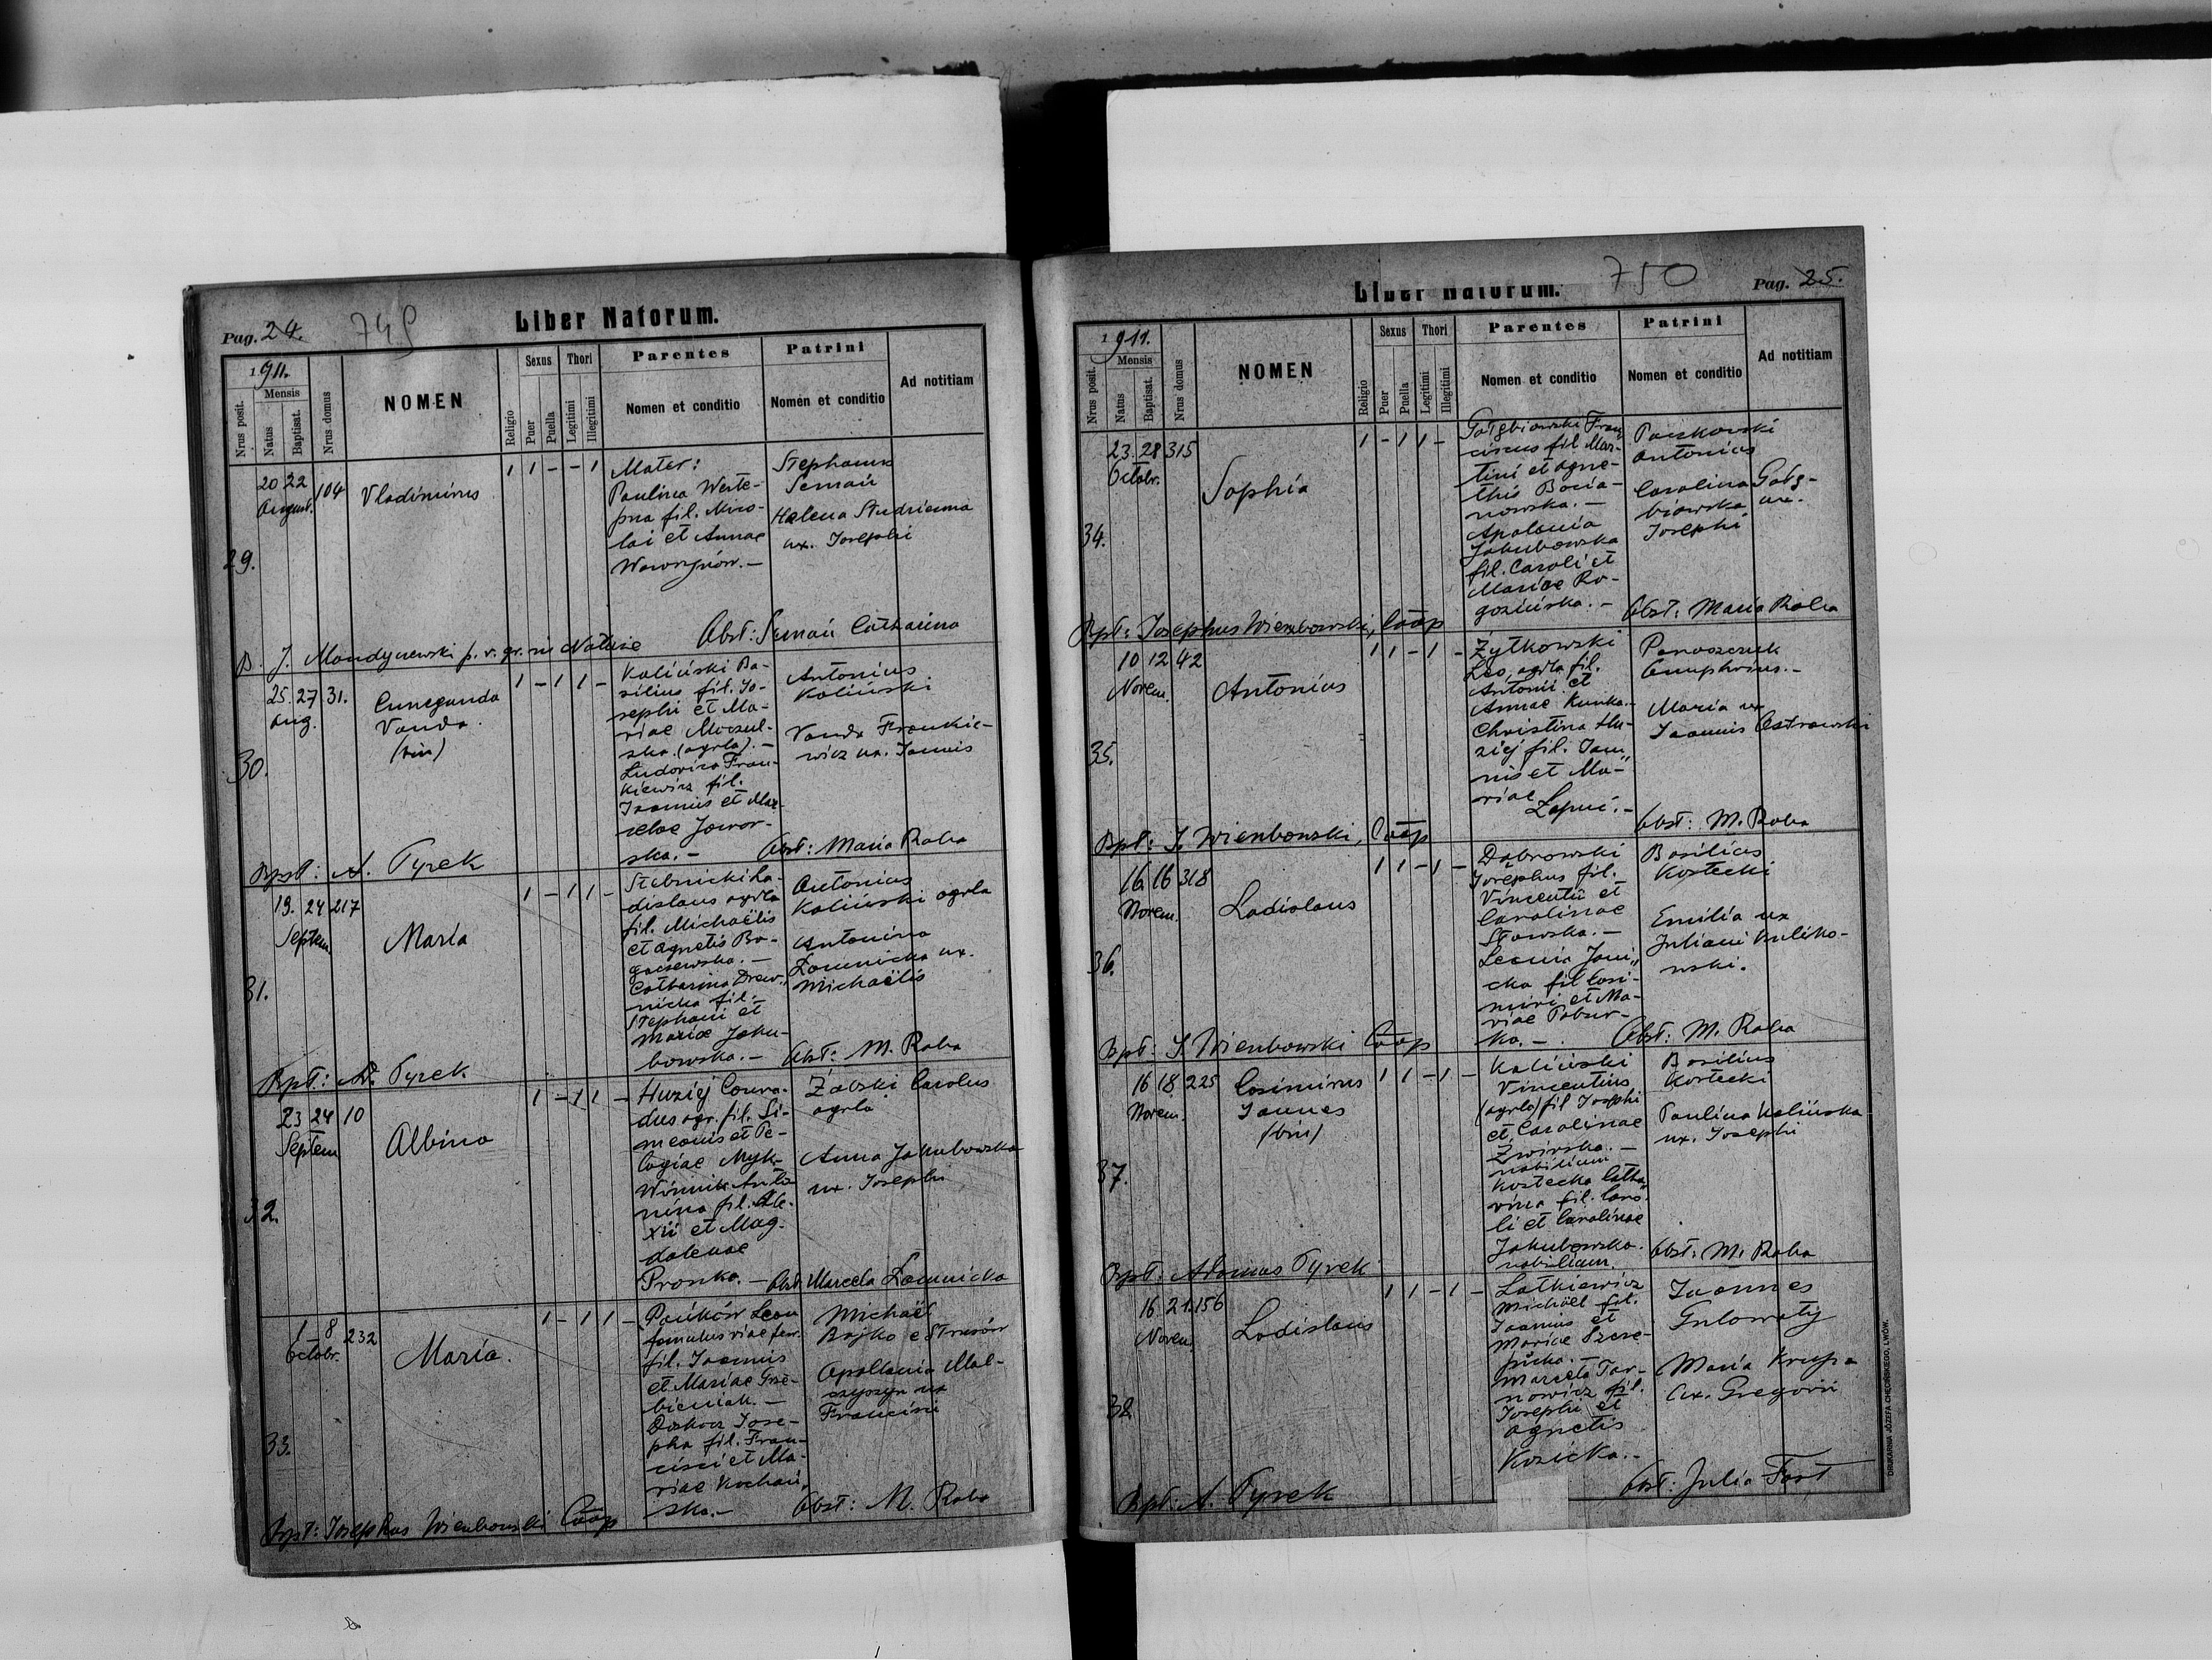 Pag. 24.
749
Liber Natorum.
1911.
Nrus posit.
Mensis
Natus
Baptisat.
Nrus domus
NOMEN
Religio
Sexus
Puer
Puella
Thori
Legitimi
Illegitimi
Parentes
Nomen et conditio
Patrini
Nomen et conditio
Ad notitiam
29.
20 22 104
August.
Vladimirus
1 1 - - 1
Mater:
Paulina
fil. Nico-
lai et Annae
Stephanus
Semań
Helena
ux. Josephi
Obst: Semań Catharina
B. J.
30.
25. 27 31.
Aug.
Cunegunda
Vanda.
(bin)
1 - 1 1 -
Kaliński Ba-
silius fil. Jo-
sephi et Ma-
riae Moczul-
ska. (agrla). -
Ludovica Fran-
kiewicz fil.
Joannis et Mar-
celae Jawor-
ska. -
Antonius
Kaliński
Vanda Frankie-
wicz ux. Joannis
Obst: Maria Raba
Bpt: A. Tyrek
31.
19. 24 217
Septem.
Maria
1 - 1 1 -
Stebnicki La-
dislaus agrla
fil. Michaëlis
et Agnetis Bo-
gaczewska. -
Catharina Drew-
nicka fil. -
Stephani et
Mariae Jaku-
bowska. -
Antonius
Kaliński agrla
Antonina
Łomnicka ux.
Michaëlis
Obst: M. Raba
Bpt.: Ad. Tyrek
32.
23 24 10
Septem
Albina
1 - 1 1 -
Huziej Conra-
dus agr. fil. Si-
meonis et Pe-
lagiae Myk-
Winnik Anto
nina fil. Ale-
xii et Mag-
dalenae
Proska. -
Żabski Carolus
agrla
Anna Jakubowska
ux. Josephi
Obst: Marcela Łomnicka
33.
1 8 232
Octobr.
Maria.
1 - 1 1 -
Pańków Leon
famulus viae ferr.
fil. Joannis
et Mariae Grze-
bieniak. -
Jose-
pha fil. Fran-
cisci et Ma-
riae Kochań-
ska. -
Michaël
Bojko e Strusów
Apollonia Mal-
czyszyn ux
Francisci
Obst: M. Raba
Bpt: Josephus Wierzbowski Coop
Liber Natorum.
750
Pag. 25.
1911.
Nrus posit.
Mensis
Natus
Baptisat.
Nrus domus
NOMEN
Religio
Sexus
Puer
Puella
Thori
Legitimi
Illegitimi
Parentes
Nomen et conditio
Patrini
Nomen et conditio
Ad notitiam
34.
23. 28 315
Octobr.
Sophia
1 - 1 1 -
Gołębiowski Fran
ciscus fil Mar-
tini et Agne-
this Bocia-
nowska. -
Apolonia
Jakubowska
fil. Caroli et
Mariae Ro-
gozińska. -
Paczkowski
Antonius
Carolina Gołę-
biowska ux.
Josephi
Obst: Maria Raba
Bpt: Josephus Wierzbowski, Coop
35.
10 12 42
Novem.
Antonius
1 1 - 1 -
Żytkowski
Leo, agrla fil.
Antonii et
Annae Kunka. -
Christina Hu-
ziej fil. Joan
nis et Ma-
riae
Łapuć. -
Panaszczuk
Onuphrius. -
Maria ux
Joannis Ostrowski
Obst: M. Raba
Bpt: J. Wierzbowski, Coop
36.
16 16 318
Novem.
Ladislaus
1 1 - 1 -
Dąbrowski
Josephus fil.
Vincentii et
Carolinae
Stawska. -
Leonia Jani
cka fil Casi-
miri et Ma-
riae Tabur-
ka. -
Basilius
Kostecki
Emilia ux
Juliani Kuliko-
wski.
Obst: M. Raba
Bpt: J. Wierzbowski Coop
37.
16 18. 225
Novem.
Casimirus
Joannes
(bin)
1 1 - 1 -
Kaliński
Vincentius
(agrla) fil Josephi
et Carolinae
Żwirska. -
nobilium
Kostecka Catha
rina fil. Caro-
li et Carolinae
Jakubowska.
nobilium.
Basilius
Kostecki
Paulina Kalińska
ux. Josephi
Obst: M. Raba
Bpt: Adamus Tyrek
38
16 21. 156
Novem.
Ladislaus
1 1 - 1 -
Latkiewicz
Michaël fil.
Joannis et
Mariae Szcze-
picka. -
Marcela Tar-
nowicz fil.
Josephi et
Agnetis
Kozicka. -
Joannes
Gulowaty
Maria Krupa
ux. Gregorii
Obst: Julia Fast
Bpt: A. Tyrek
DRUKARNIA JÓZEFA CHĘCIŃSKIEGO, LWÓW.